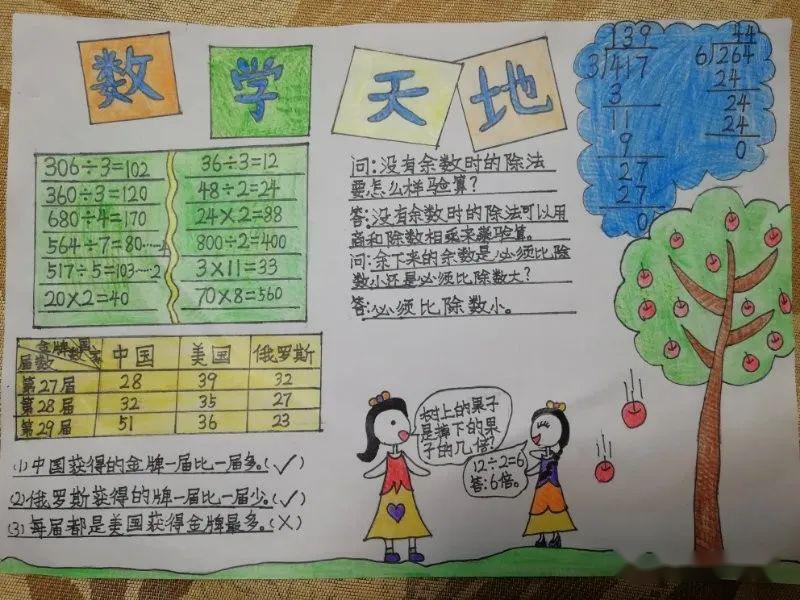 数学天地
306÷3=102
360÷3=120
680÷4=170
564÷7=80……4
517÷5=103……2
20×2=40
36÷3=12
48÷2=24
24×2=88
800÷2=400
3×11=33
70×8=560
问:没有余数时的除法
要怎么样验算?
答:没有余数时的除法可以用
商和除数相乘来乘验算。
问:余下来的余数是必须比除
数小还是必须比除数大?
答:必须比除数小。
139
3)417
3
11
9
27
27
0
44
6)264
24
24
24
0
届数 金牌数 国家 中国 美国 俄罗斯
第27届 28 39 32
第28届 32 35 27
第29届 51 36 23
(1)中国获得的金牌一届比一届多。(✓)
(2)俄罗斯获得的牌一届比一届少。(✓)
(3)每届都是美国获得金牌最多。(×)
树上的果子
是掉下的果
子的几倍?
12÷2=6
答:6倍。